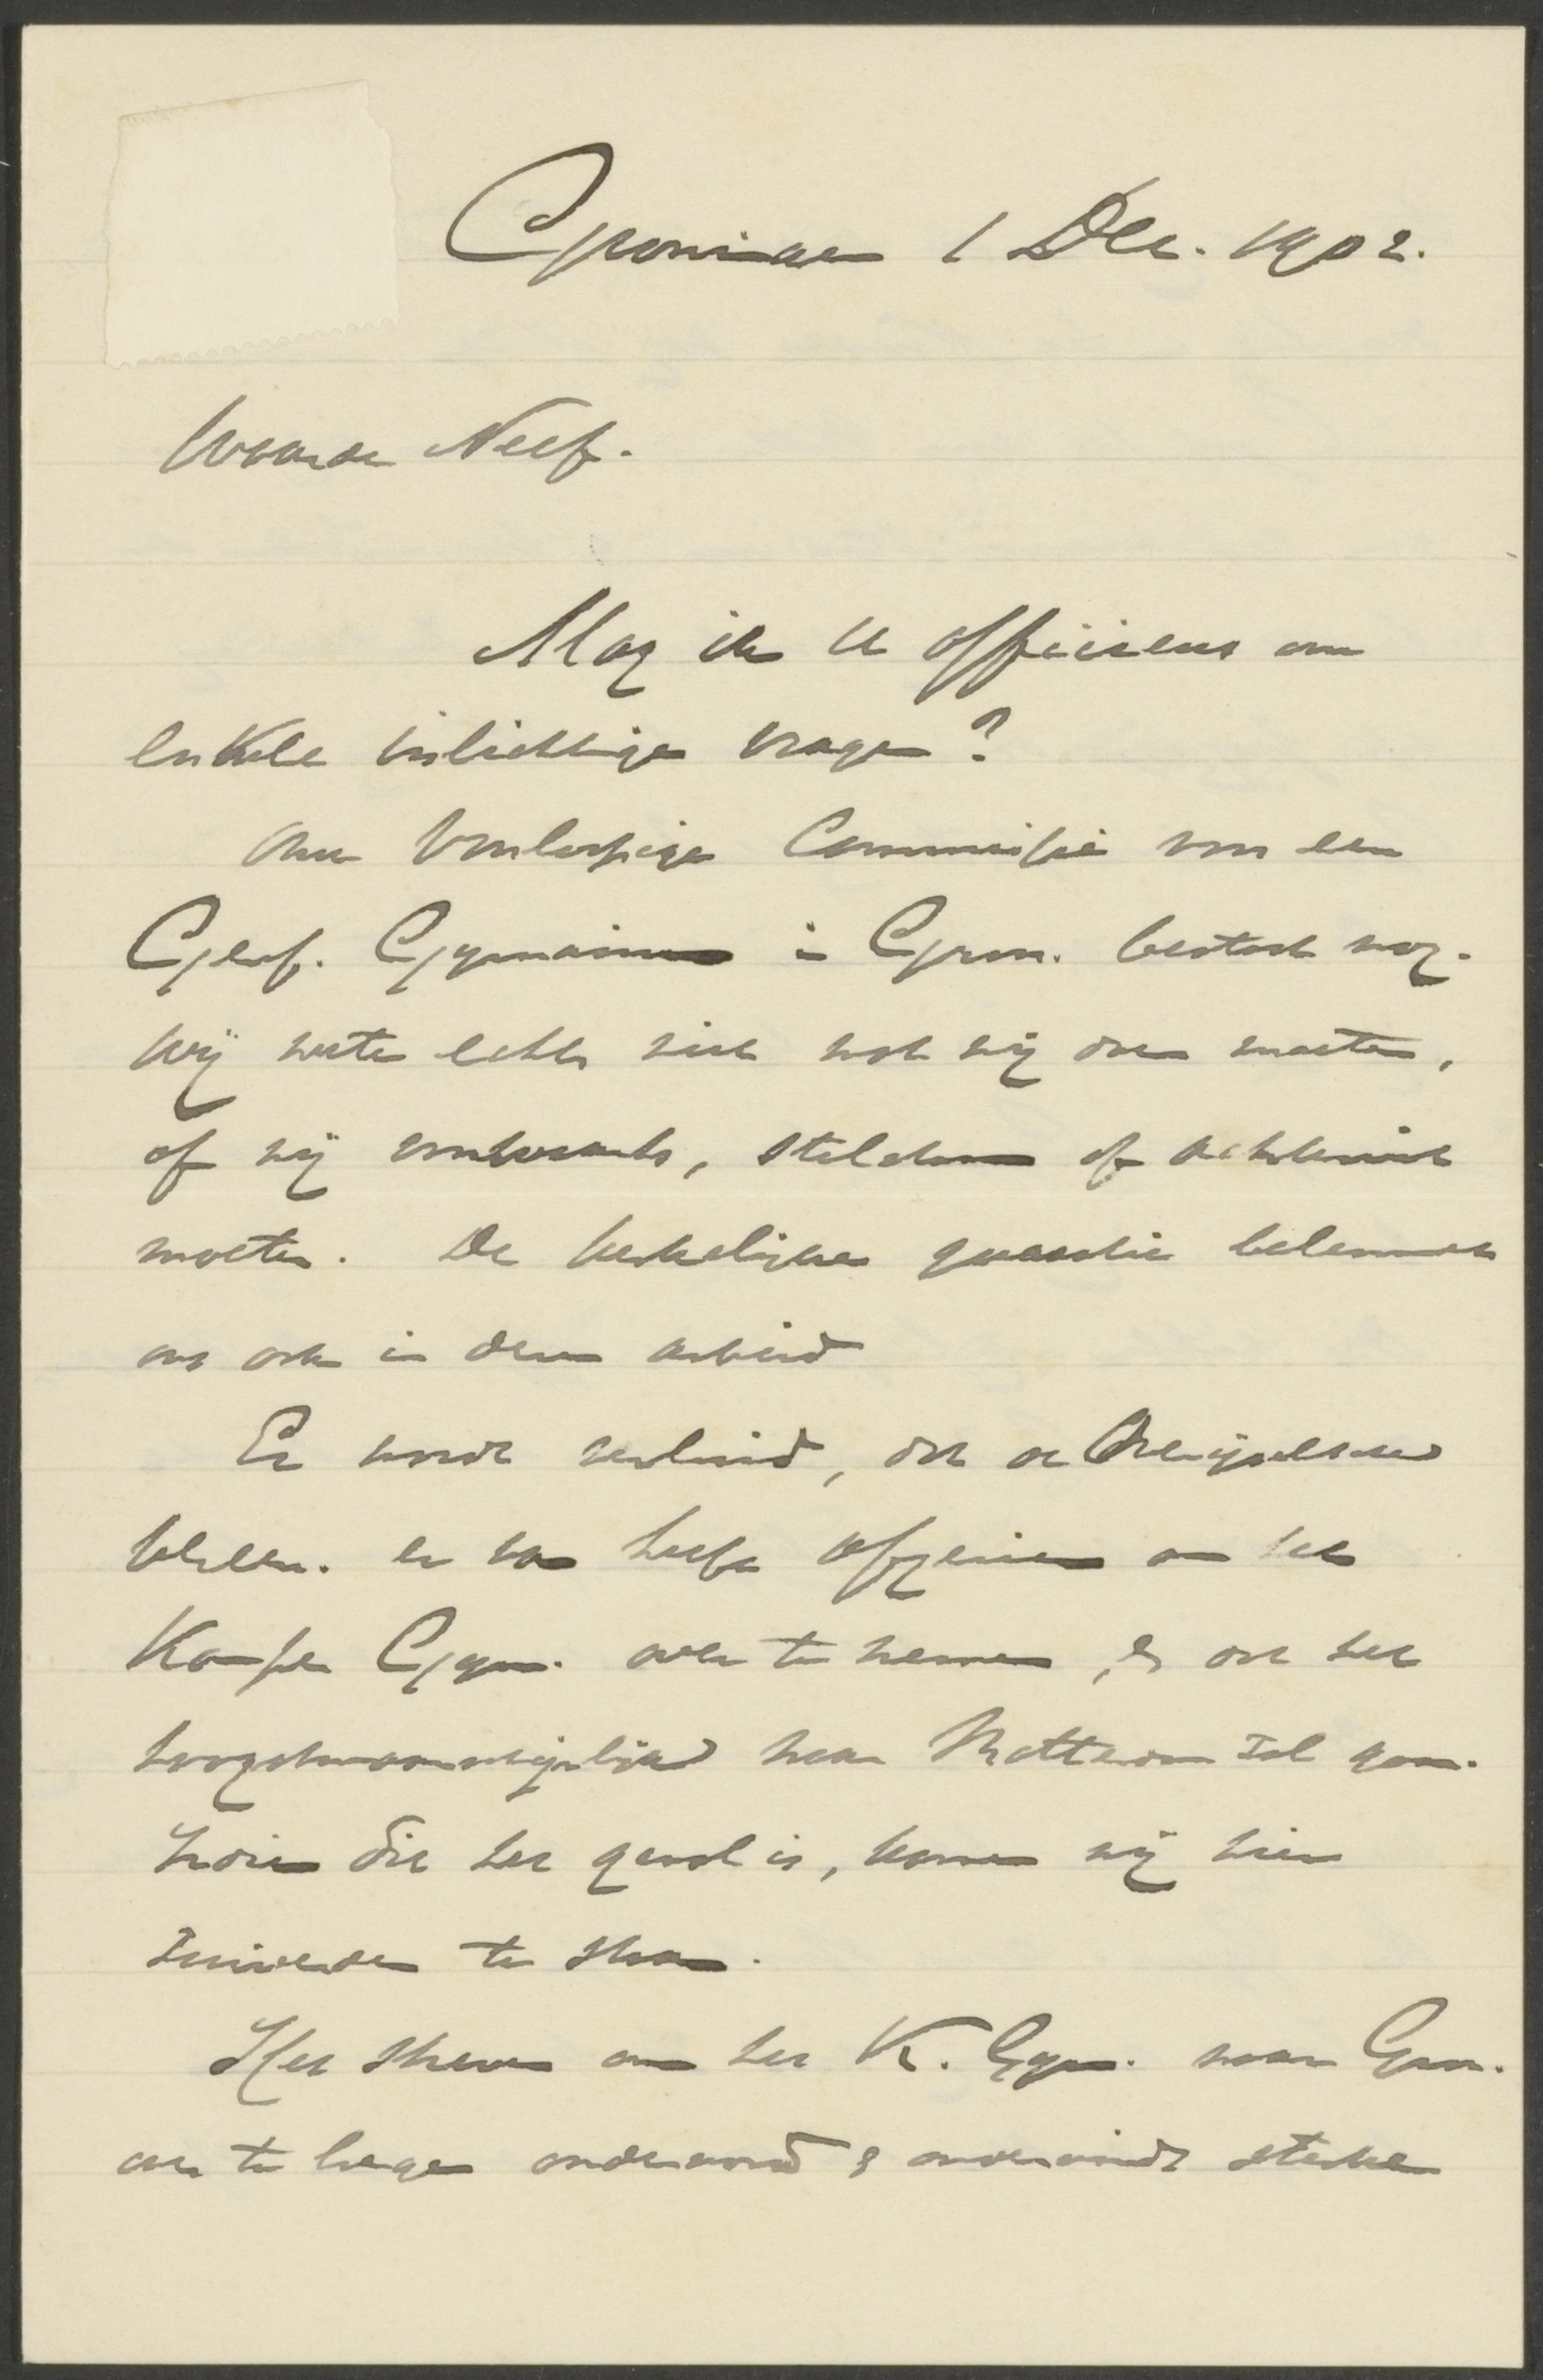 Groningen 1 Dec. 1902.
Waarde Neef.
Mag ik U officieus om
enkele inlichtingen vragen?
Onze Voorloopige Commissie voor een
Geref. Gymnasium in Gron. bestaat nog.
Wij weten echter niet wat wij doen moeten,
of wij voorwaarts, stilstaan of achteruit
moeten. De kerkelijke quaestie belemmert
ons ook in dezen arbeid
Er wordt verluid, dat de Overijselsche
Vereen. er van heeft afgezien om het
Kamper Gymn. over te nemen, & dat het
hoogstwaarschijnlijk naar Rotterdam zal gaan.
Indien dit het geval is, komen wij hier
te staan.
Het streven om het K. Gym. naar Gron.
over te brengen ondervond & ondervindt sterke